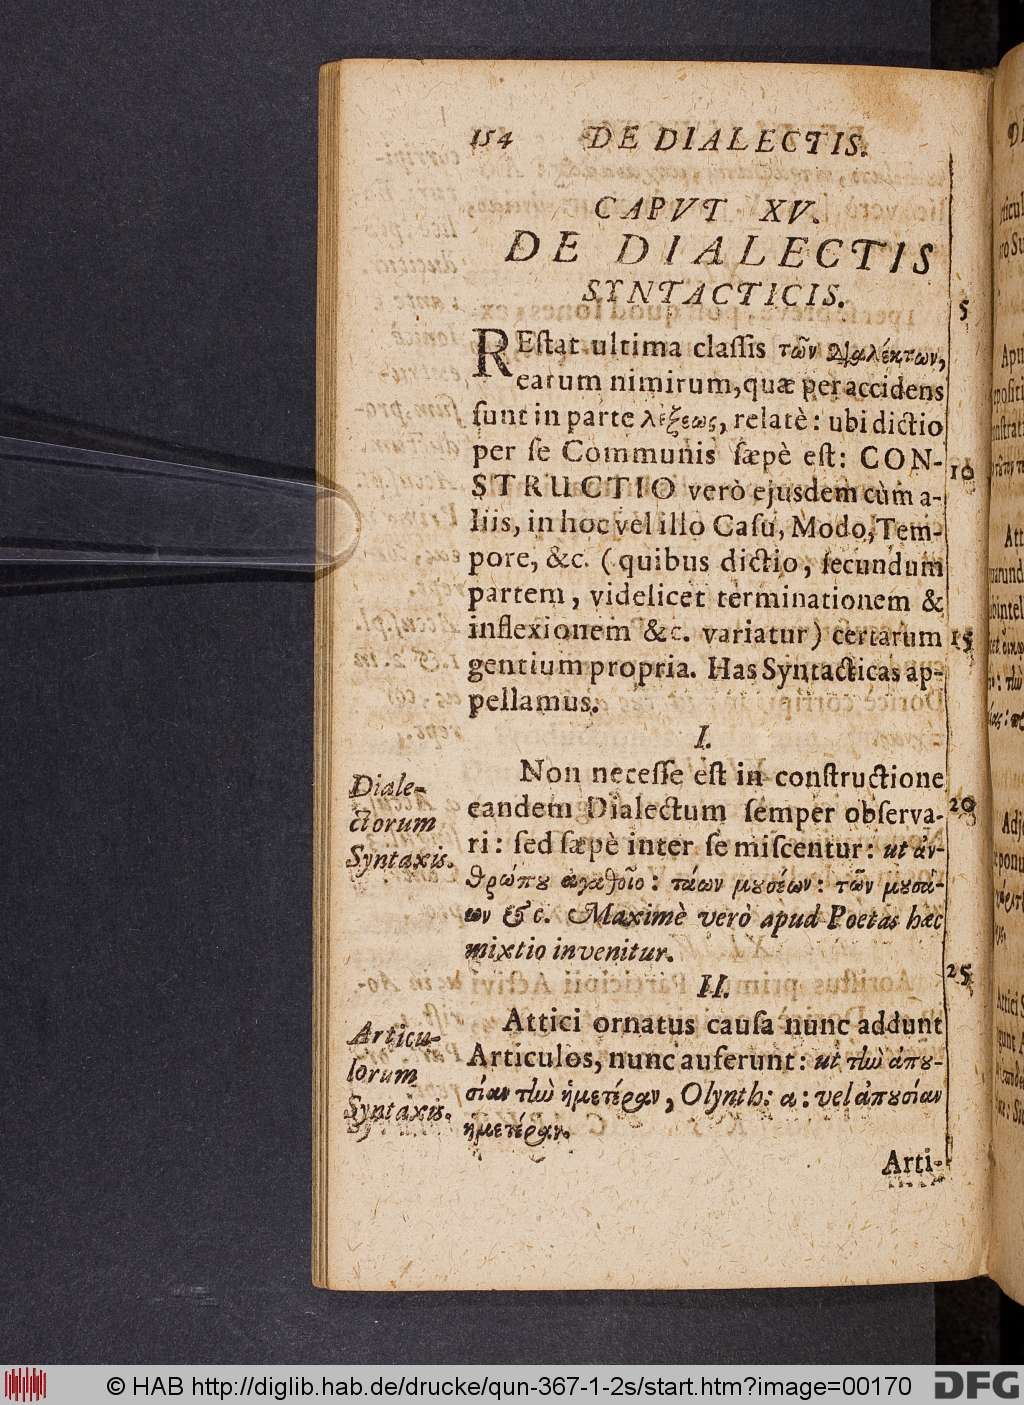 154 DE DIALECTIS.
CAPVT XV.
DE DIALECTIS
SYNTACTICIS.
5
REſtat ultima claſſis τῶν διαλέκτων,
earum nimirum, quæ per accidens
ſunt in parte λέξεως, relatè: ubi dictio
per ſe Communis ſæpè eſt: CON-
10
STRUCTIO verò ejusdem cùm a-
liis, in hoc vel illo Caſu, Modo, Tem-
pore, &c. (quibus dictio, ſecundum
partem, videlicet terminationem &
inflexionem &c. variatur) certarum
15
gentium propria. Has Syntacticas ap-
pellamus.
I.
Diale-
ctorum
Syntaxis.
Non neceſſe eſt in conſtructione
20
eandem Dialectum ſemper obſerva-
ri: ſed ſæpè inter ſe miſcentur: ut ἀν-
θρώπου ἀγαθοῖο: τάων μουσέων: τῶν μουσά-
ων &c. Maximè verò apud Poetas hæc
mixtio invenitur.
25
II.
Articu-
lorum
Syntaxis.
Attici ornatus cauſa nunc addunt
Articulos, nunc auferunt: ut τὴν ἀπου-
σίαν τὴν ἡμετέραν, Olynth: a: vel ἀπουσίαν
ἡμετέραν.
Arti-
© HAB http://diglib.hab.de/drucke/qun-367-1-2s/start.htm?image=00170
DFG